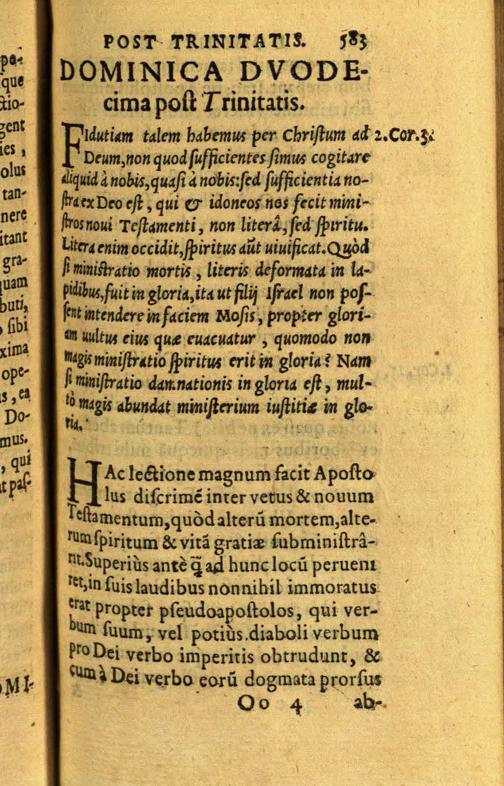 pe-
que
ctio-
gent
ies,
olus
tan-
nere
itant
gra-
quam
buti,
sibi
xima
ope-
s, ea
Do-
mus.
, qui
MI-
POST TRINITATIS. 583
DOMINICA DVODE-
cima poſt Trinitatis.
FIdutiam talem habemus per Chriſtum ad 2.Cor.3.
Deum, non quod ſufficientes ſimus cogitare
aliquid à nobis, quaſi à nobis: ſed ſufficientia no-
ſtra ex Deo eſt, qui & idoneos nos fecit mini-
ſtros noui Teſtamenti, non literâ, ſed ſpiritu.
Litera enim occidit, ſpiritus aūt uiuificat. Quòd
ſi miniſtratio mortis, literis deformata in la-
pidibus, fuit in gloria, ita ut filij Iſrael non poſ-
ſent intendere in faciem Moſis, propter glori-
am uultus eius quæ euacuatur, quomodo non
magis miniſtratio ſpiritus erit in gloria? Nam
ſi miniſtratio damnationis in gloria eſt, mul-
tò magis abundat miniſterium iuſtitiæ in glo-
ria.
HAc lectione magnum facit Apoſto
lus diſcrimē inter vetus & nouum
Teſtamentum, quòd alterū mortem, alte-
rum ſpiritum & vitā gratiæ ſubminiſtrâ-
rit. Superiùs antè q̄ ad hunc locū perueni
ret, in ſuis laudibus nonnihil immoratus
erat propter pſeudoapoſtolos, qui ver-
bum ſuum, vel potiùs diaboli verbum
pro Dei verbo imperitis obtrudunt, &
cum à Dei verbo eorū dogmata prorſus
Oo 4 ab-